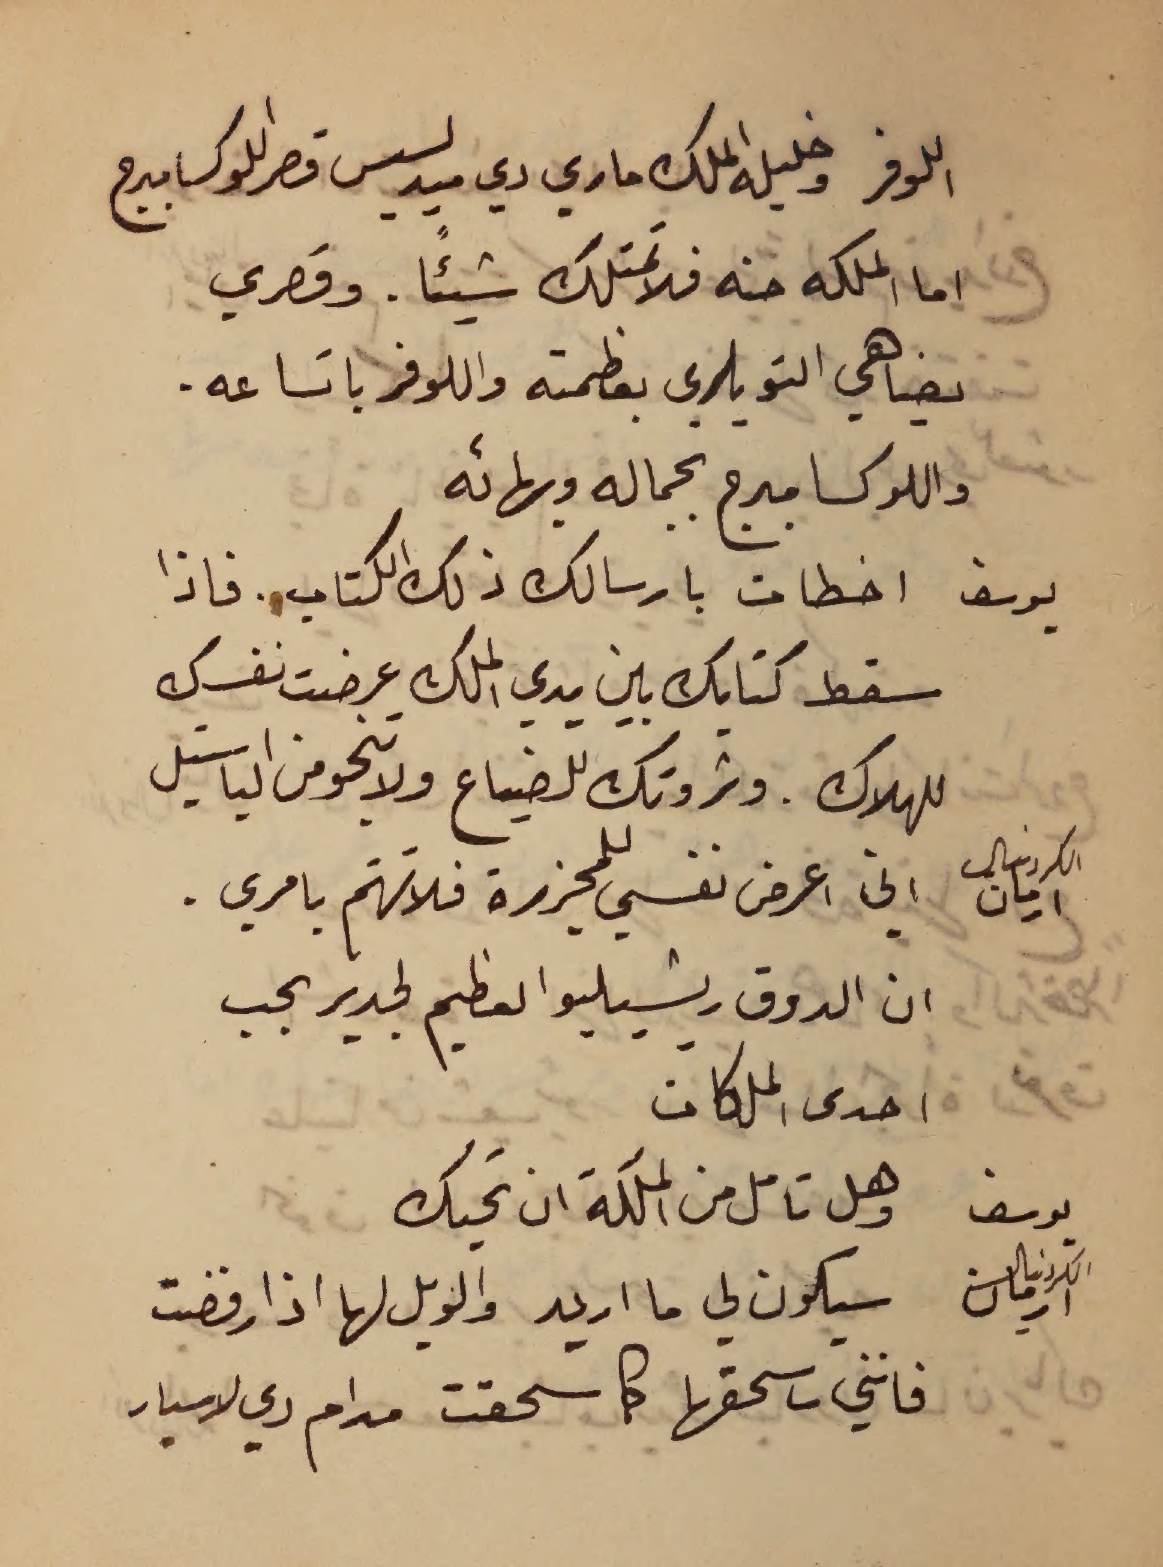 اللوفر وخليله الملك ماري دي ميديسيس قصر اللوكسامبرج
اما الملكه حنه فلا تمتلك شيئًا . وقصري
يضاهي التويلري بعظمته واللوفر باتساعه .
واللوكسامبرج بجماله وبهائه
يوسف اخطات بارسالك ذلك الكتاب . فاذا
سقط كتابك بين يدي الملك عرضت نفسك
للهلاك . وثروتك للضياع ولا تنجو من الباستيل
الكردينال ارمان اني اعرض نفسي للمجزرة فلا تهتم بامري .
ان الدوق ريشيليو العظيم لجدير بحب
احدى الملكات
يوسف وهل تامل من الملكة ان تحبك
الكردينال ارمان سيكون لي ما اريد والويل لها اذا رفضت
فانني ساسحقها كما سحقت مدام دي لاسيار